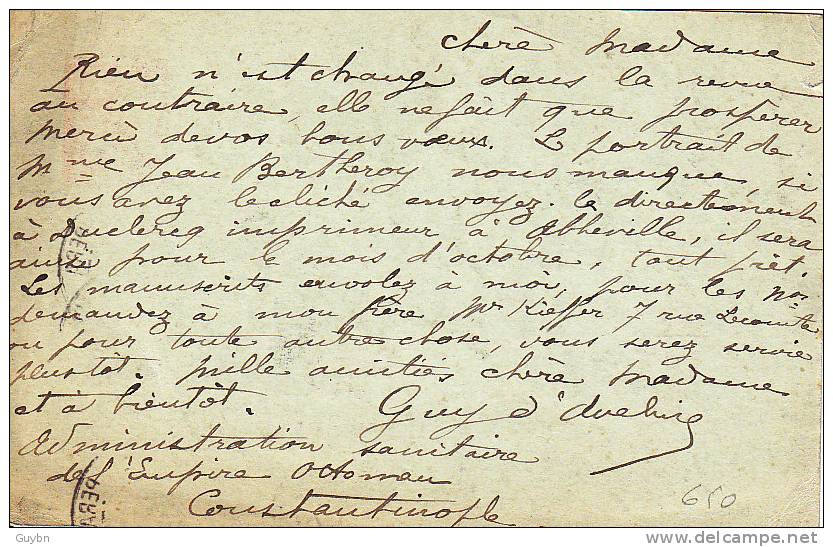 chère Madame
Rien n'est changé dans la revue
au contraire, elle ne fait que prospérer
merci de vos bons vœux. Le portrait de
Mme Jean Bertheroy nous manque, si
vous avez le cliché envoyez-le directement
à Duclercq imprimeur à Abbeville, il sera
ainsi pour le mois d'octobre, tout prêt.
Les manuscrits envoiez à moi, pour les Nos
demandez à mon frère Mr Kieffer 7 rue Lecomte
ou pour toute autre chose, vous serez servie
plus tôt. Mille amitiés chère Madame
et à bientôt. Guy d'Aveline
Administration sanitaire
de l'Empire Ottoman
Constantinople
650
Guybn
delcampe.net